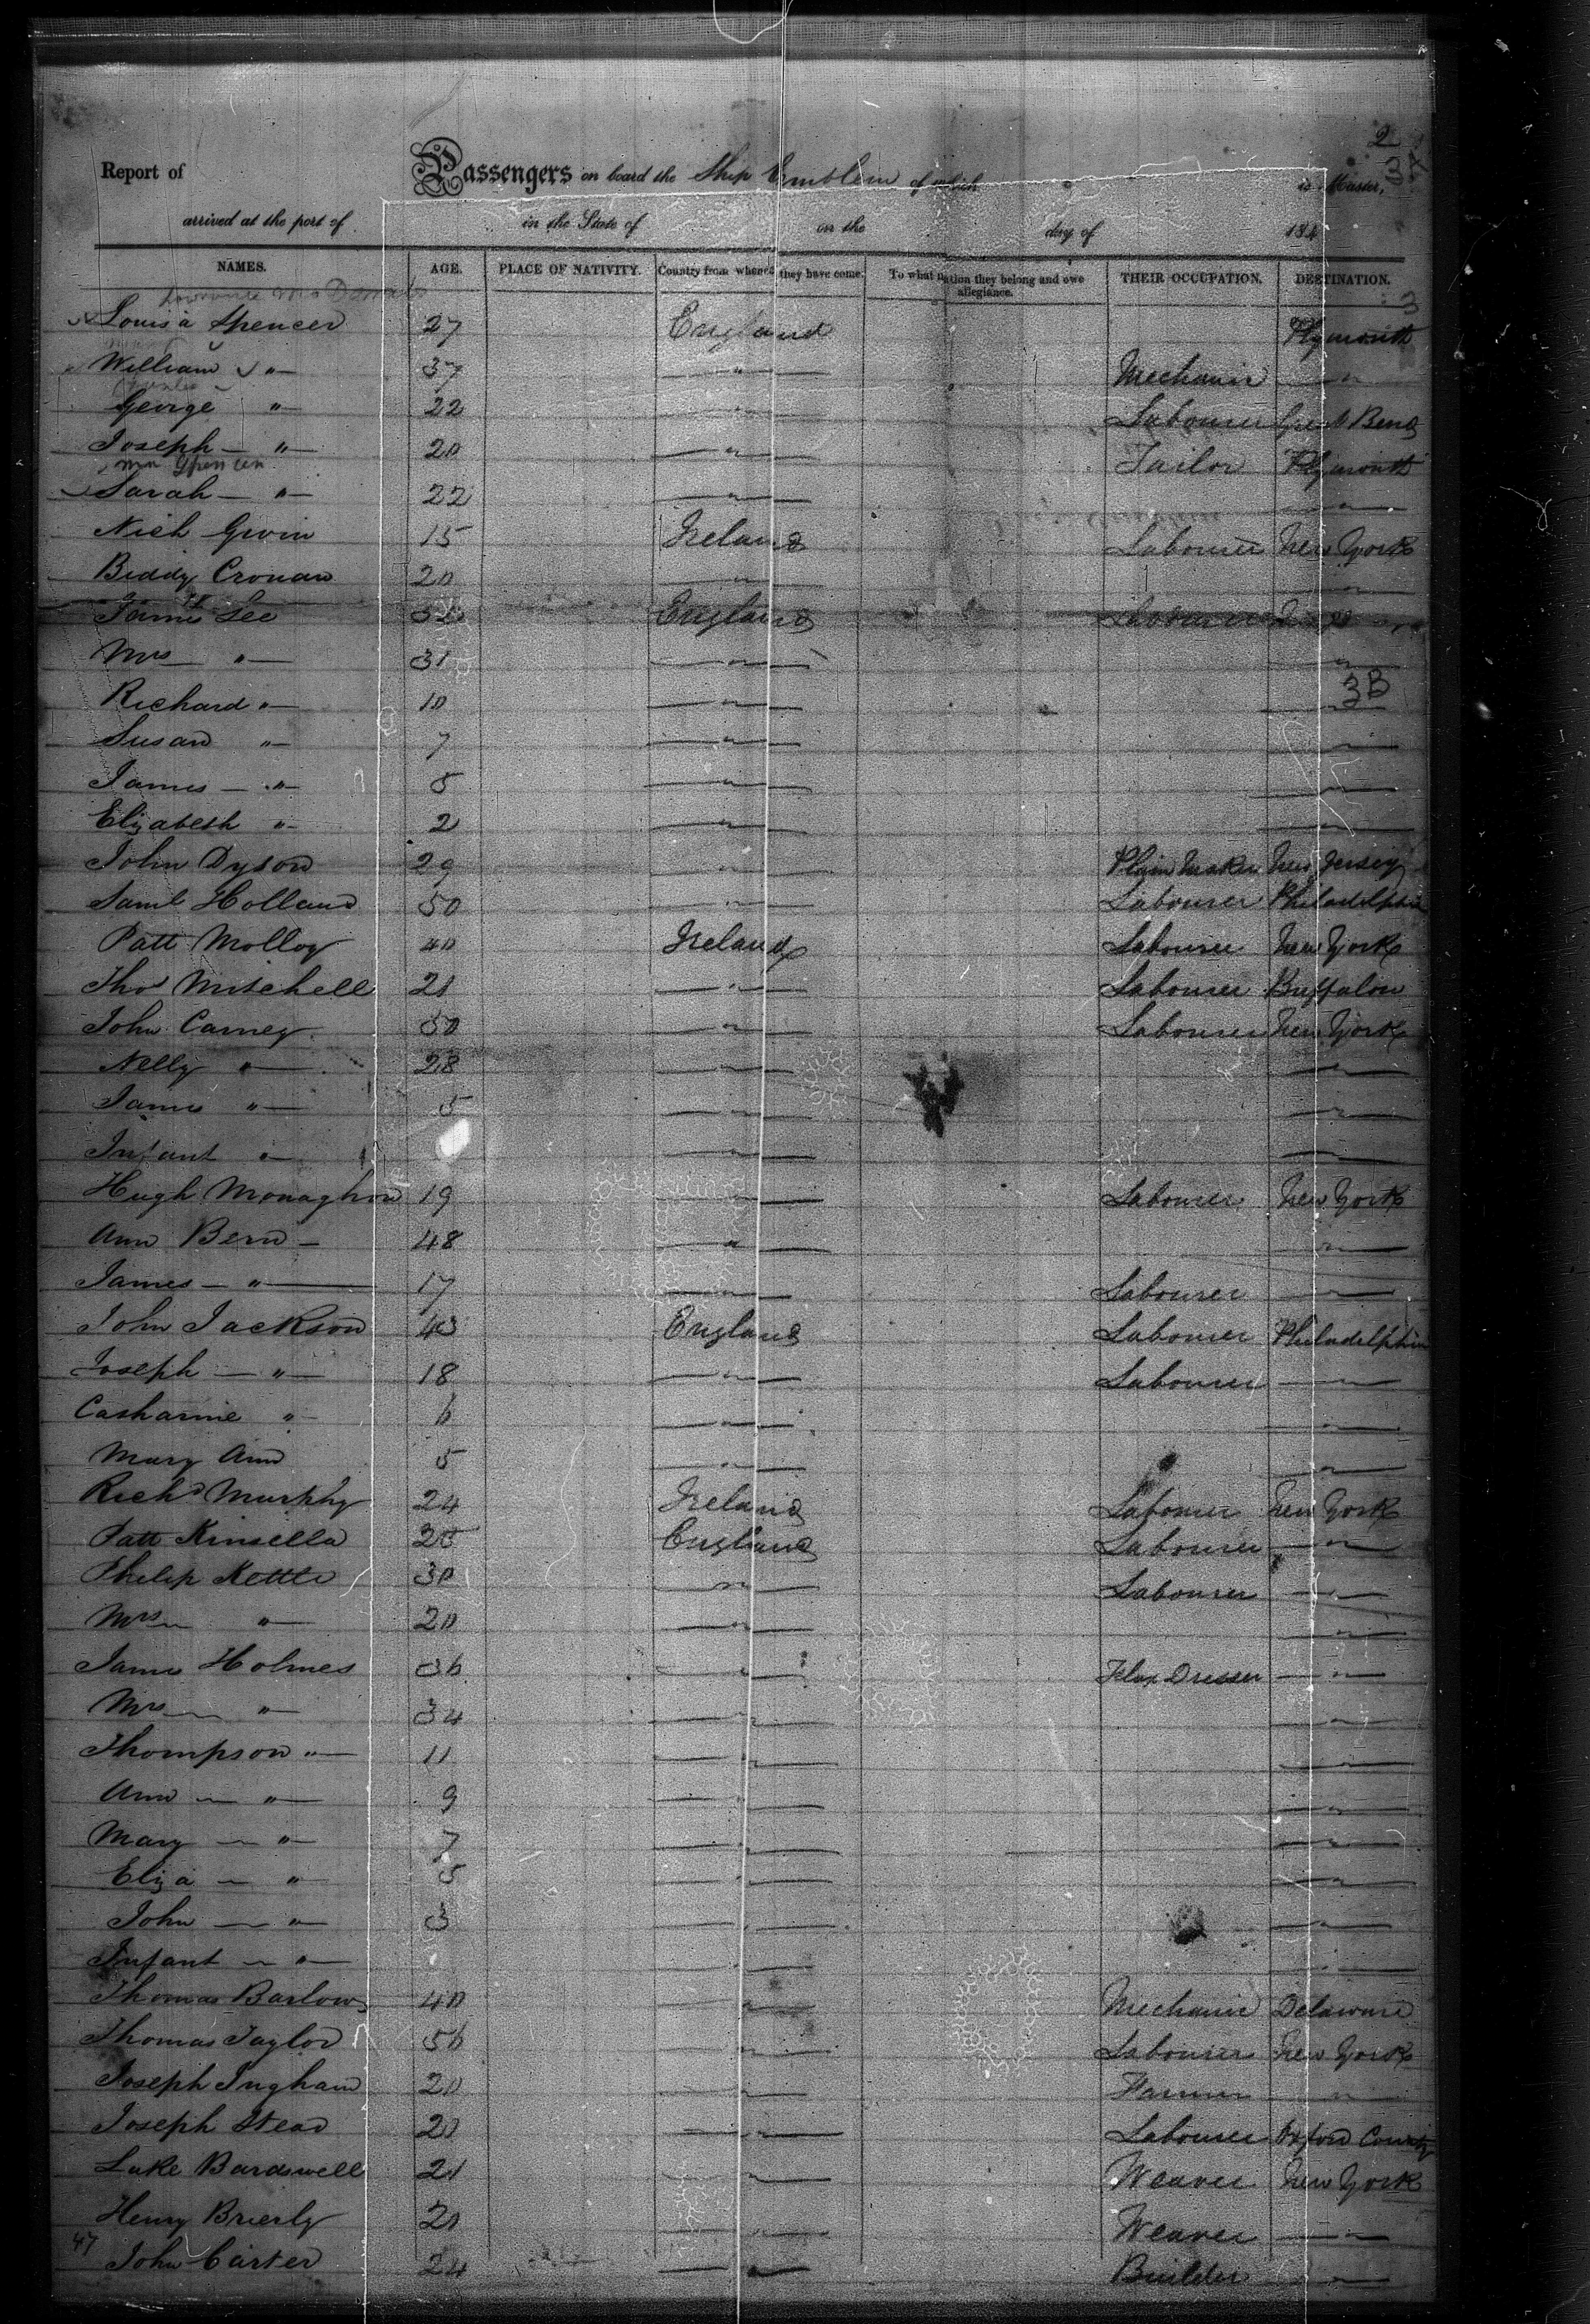 2
Report of Passengers on board the Ship Emblem of which is Master,
arrived at the port of in the State of on the day of 184
NAMES. AGE. PLACE OF NATIVITY. Country from whence they have come. To what nation they belong and owe allegiance. THEIR OCCUPATION. DESTINATION.
Louisa Spencer 27 England Plymouth
William " 37 " Mechanic "
George " 22 " Labourer Great Bend
Joseph " 20 " Tailor Plymouth
Sarah " 22 " "
Nich Gwin 15 Ireland Labourer New York
Biddy Cronan 20 " "
James Lee England Labourer
Mrs " 31 " "
3B
Richard " 10 " "
Susan " 7 " "
James " 5 " "
Elizabeth " 2 " "
John Dyson 29 " Maker New Jersey
Saml Holland 50 " Labourer Philadelphia
Patt Molloy 40 Ireland Labourer New York
Thos Mitchell 21 " Labourer Buffalow
John Carney 30 " Labourer New York
Nelly " 28 " "
James " 5 " "
Infant " " "
Hugh Monaghan 19 " Labourer New York
Ann Bern 48 " "
James " 17 " Labourer "
John Jackson 43 England Labourer Philadelphia
Joseph " 18 " Labourer "
Catharine " 6 " "
Mary Ann 5 " "
Richd Murphy 24 Ireland Labourer New York
Patt Kinsella 25 England Labourer "
Philip Kettle 30 " Labourer "
Mrs " 20 " "
James Holmes 36 " Flax Dresser "
Mrs " 34 " "
Thompson " 11 " "
Ann " 9 " "
Mary " 7 " "
Eliza " 5 " "
John " 3 " "
Infant " " "
Thomas Barlow 40 " Mechanic Delaware
Thomas Taylor 56 " Labourer New York
Joseph Ingham 20 " Farmer "
Joseph Stead 20 " Labourer Oxford County
Luke Bardswell 21 " Weaver New York
Henry Brierly 21 " Weaver "
47 John Carter 24 " Builder "